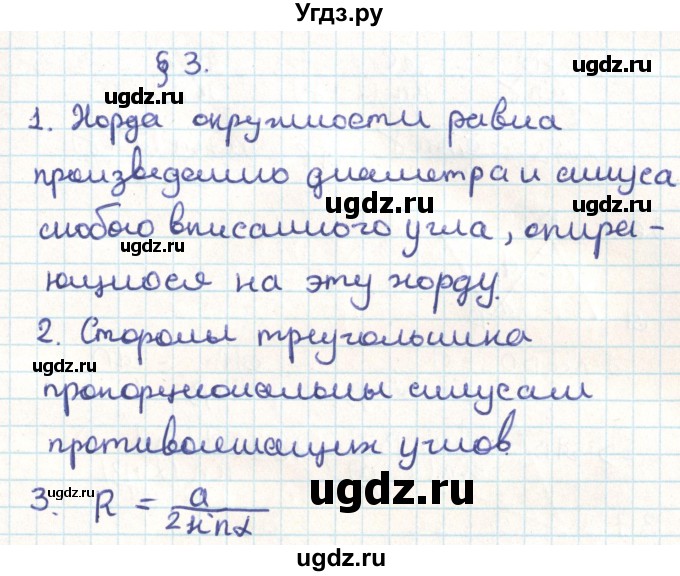 Угдз.ру
§ 3.
ugdz.ru
1. Хорда окружности равна
ugdz.ru
произведению диаметра и синуса
ugdz.ru
любого вписанного угла, опира-
ugdz.ru
ющиося на эту хорду.
2. Стороны треугольника
ugdz.ru ugdz.ru
пропорциональны синусам
ugdz.ru
противолежащих углов
3. R = a / 2sin α
ugdz.ru ugdz.ru
ugdz.ru
ugdz.ru